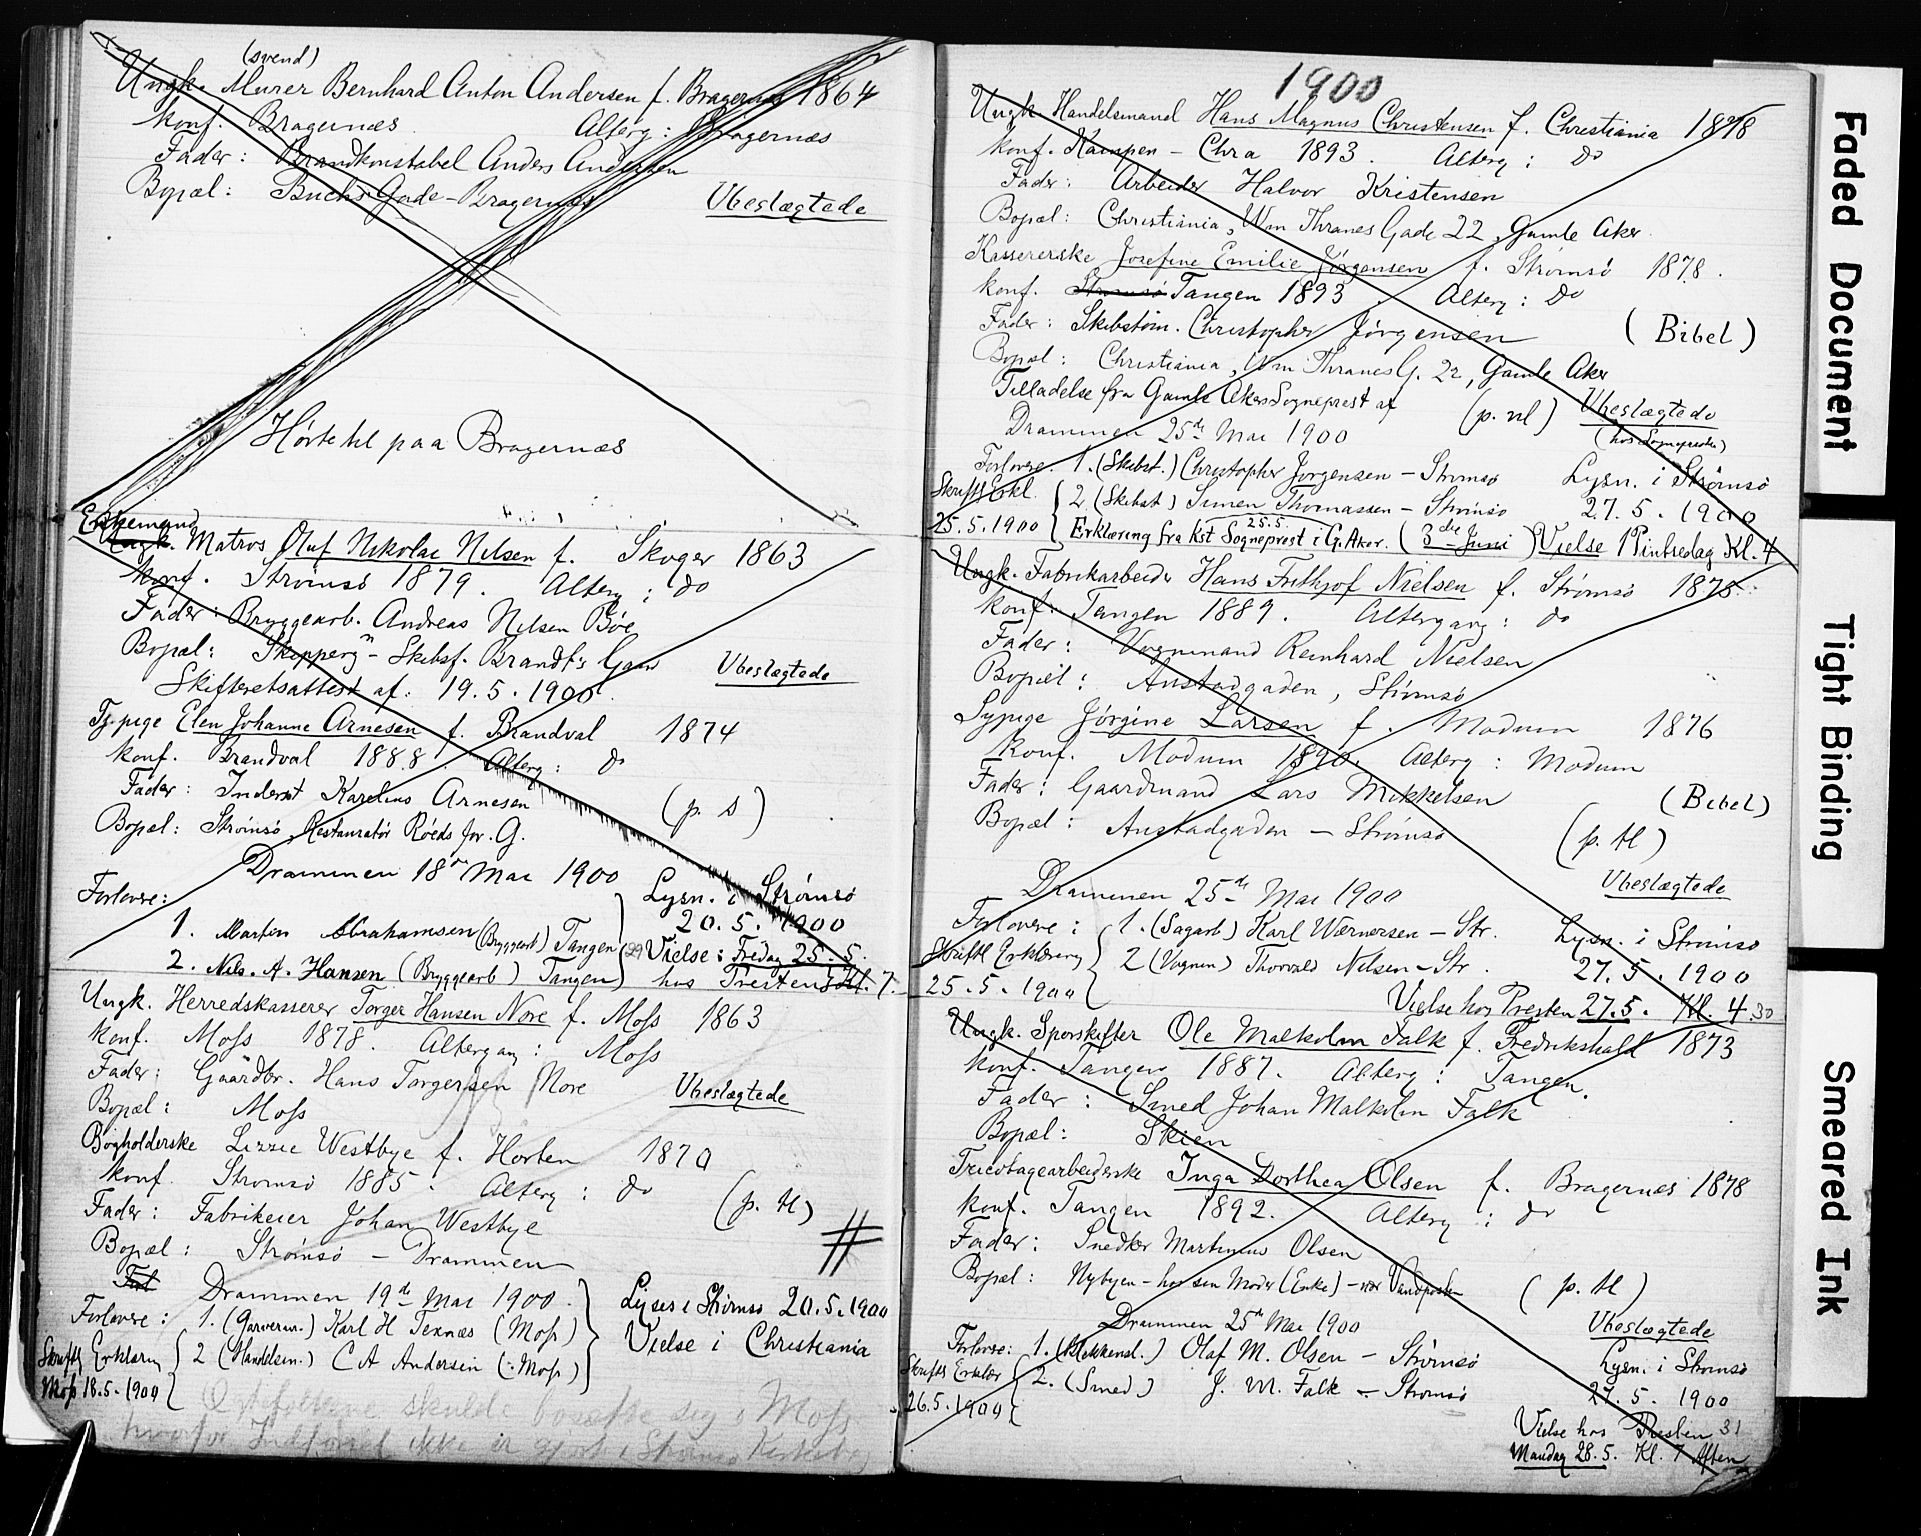 (svend)
Ungk. Murer Bernhard Anton Andersen f. Bragernæs 1864
konf. Bragernæs Alterg: Bragernæs
Fader: Brandkonstabel Anders Andersen
Bopæl: Buchs Gade - Bragernæs Ubeslægtede
Hørte til paa Bragernæs
Enkemand
Ungk. Matros Oluf Nikolai Nilsen f. Skoger 1863
konf. Strømsø 1879. Alterg: do
Fader: Bryggearb. Andreas Nilsen Bøe
Bopæl: Skipperg - Skibsf. Brandt's Gaar Ubeslægtede
Skifteretsattest af: 19.5.1900.
Tj.pige Elen Johanne Arnesen f. Brandval 1874
konf. Brandval 1888. Alterg: do
Fader: Inderst Karelius Arnesen
Bopæl: Strømsø, Restauratør Røeds for. G. (p. s)
Drammen 18de Mai 1900 Lysn. i Strømsø
Forlovere: 20.5.1900
1. Martin Abrahamsen (Bryggearb) Tangen 29 Vielse: Fredag 25.5.
2. Nils. A. Hansen (Bryggearb) Tangen hos Presten Kl. 7.
Ungk. Herredskasserer Torger Hansen Nore f. Moss 1863
konf. Moss 1878. Altergang: Moss
Fader: Gaardbr. Hans Torgersen Nore
Bopæl: Moss Ubeslægtede
Bogholderske Lizzie Westbye f. Horten 1870
konf. Strømsø 1885. Alterg: do
Fader: Fabrikeier Johan Westbye (p. tl)
Bopæl: Strømsø - Drammen #
Drammen 19de Mai 1900. Lyses i Strømsø 20.5.1900
Forlovere: 1. (Garverm.) Karl H Texnæs (Moss) Vielse i Christiania
Skriftl Erklæring 2 (Handelsm.) C A Andersen (Moss)
Moss 18.5.1900
skulde bosætte sig i Moss
hvorfor Indførsel ikke er gjort i Strømsø Kirkebog
1900
Ungk. Handelsmand Hans Magnus Christensen f. Christiania 1878
konf. Kampen - Chra 1893. Alterg: do
Fader: Arbeider Halvor Kristensen
Bopæl: Christiania, Wm Thranes Gade 22, Gamle Aker.
Kassererske Josefine Emilie Jørgensen f. Strømsø 1878.
konf. Strømsø Tangen 1893. Alterg: Do
Fader: Skibstøm. Christopher Jørgensen (Bibel)
Bopæl: Christiania, Wm Thranes G. 22, Gamle Aker
Tilladelse fra Gamle Akers Sogneprest af (p. tl) Ubeslægtede
Drammen 25de Mai 1900 (hos Sognepresten)
Forlovere: 1. (Skibst.) Christopher Jørgensen - Strømsø Lysn. i Strømsø
Skriftl Erkl. 2 (Skibst) Simen Thomassen - Strømsø 27.5.1900
25.5.1900 Erklæring fra Kst Sogneprest i G. Aker. 25.5. (3de Juni) Vielse 1 Pintsedag Kl. 4
Ungk. Fabrikarbeider Hans Frithjof Nielsen f. Strømsø 1875
konf: Tangen 1889. Altergang: do
Fader: Vognmand Reinhard Nielsen
Bopæl: Austadgaden, Strømsø
Sypige Jørgine Larsen f. Modum 1876
konf. Modum 1890. Alterg: Modum
Fader: Gaardmand Lars Mikkelsen (Bibel)
Bopæl: Austadgaden - Strømsø (p. tl)
Drammen 25de Mai 1900 Ubeslægtede
Forlovere: 1. (Sagarb) Karl Wærnersen - Str. Lysn. i Strømsø
Skriftl Erklæring 2 (Vognm) Thorvald Nilsen - Str. 27.5.1900
25.5.1900 Vielse hos Presten 27.5. Kl. 4. 30
Ungk. Sporskifter Ole Malkolm Falk f. Fredrikshald 1873
konf. Tangen 1887. Alterg: Tangen.
Fader: Smed Johan Malkolm Falk
Bopæl: Skien
Tricotagearbeiderske Inga Dorthea Olsen f. Bragernæs 1878
konf. Tangen 1892. Alterg: do
Fader: Snedker Martinius Olsen
Bopæl: Nybyen - hos sin Moder (Enke) - ved Vandposten (p. tl)
Drammen 25de Mai 1900 Ubeslægtede
Forlovere: 1. (Blikkensl.) Olaf M. Olsen - Strømsø Lysn. i Strømsø
Skriftl Erklær 2. (Smed) J. M. Falk - Strømsø 27.5.1900
26.5.1900 Vielse hos Presten 31
Mandag 28.5. Kl. 7 Aften
Faded Document
Tight Binding
Smeared Ink